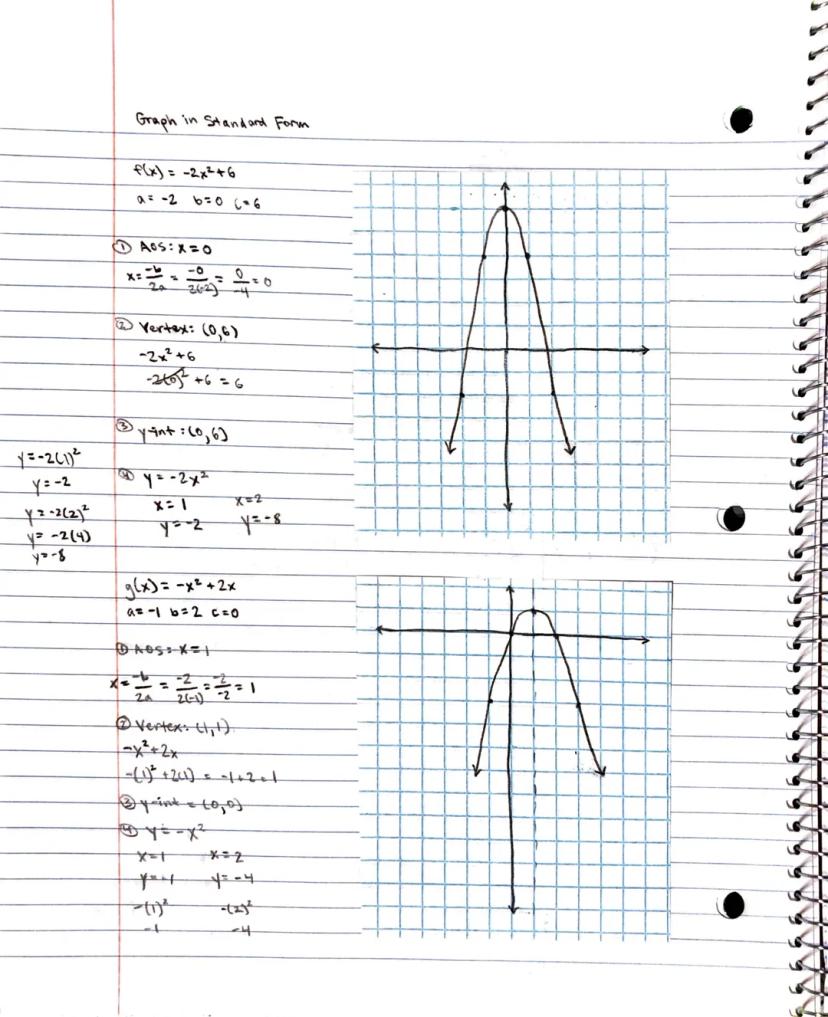 Graph in Standard Form
f(x) = -2x²+6
a = -2 b=0 c=6
① AOS: x=0
x = -b/2a = -0/2(-2) = 0/-4 = 0
② Vertex: (0,6)
-2x²+6
-2(0)² +6 = 6
③ y-int: (0,6)
④ y = -2x²
x=1 x=2
y=-2 y=-8
y=-2(1)²
y=-2
y=-2(2)²
y= -2(4)
y=-8
g(x) = -x² + 2x
a=-1 b=2 c=0
① AOS: x=1
x = -b/2a = -2/2(-1) = -2/-2 = 1
② Vertex: (1,1)
-x²+2x
-(1)² +2(1) = -1+2=1
③ y-int = (0,0)
④ y = -x²
x=1 x=2
y=-1 y=-4
-(1)² -(2)²
-1 -4